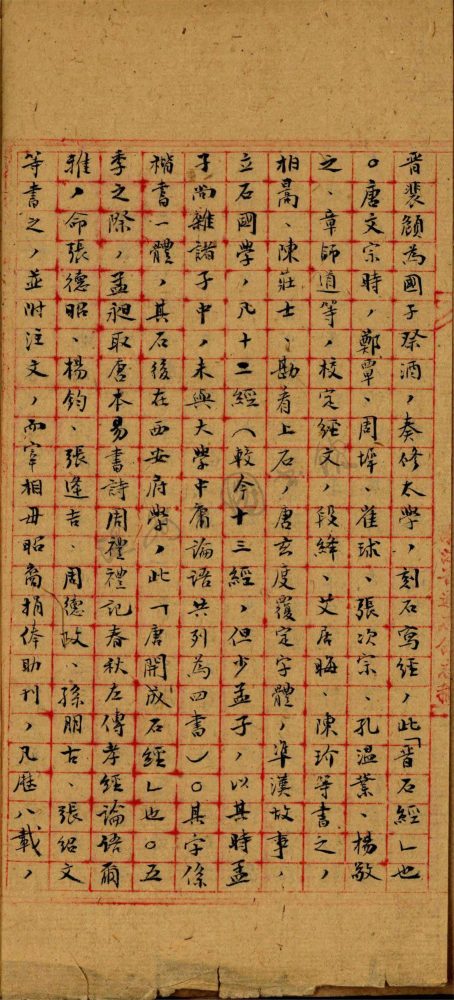 晋裴頠為國子祭酒，奏修太學，刻石寫經，此「晋石經」也
。唐文宗時，鄭覃、周墀、崔球、張次宗、孔温業、楊敬
之、章師道等，校定經文，段絳、艾居晦、陳玠等書之，
柏暠、陳莊士、勘看上石，唐玄度覆定字體，準漢故事，
立石國學，凡十二經（較今十三經，但少孟子，以其時孟
子尚雜諸子中，未與大學中庸論語共列為四書）。其字係
楷書一體，其石後在西安府學，此「唐開成石經」也。五
季之際，孟昶取唐本易書詩周禮禮記春秋左傳孝經論語爾
雅，命張德昭、楊鈞、張逢吉、周德政、孫朋古、張紹文
等書之，並附注文，而宰相毋昭裔捐俸助刊，凡歷八載，